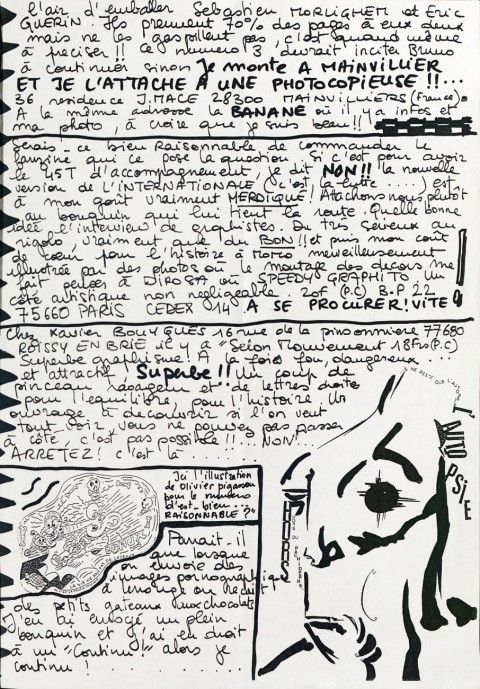 l'air d'emballer Sebastien MORLIGHEM et Eric
GUERIN. Ils prennent 70% des pages à eux deux
mais ne les gaspillent pas, c'est quand même
à préciser!! Ce numéro 3 devrait inciter Bruno
à continuer sinon je monte A MAINVILLIER
ET JE L'ATTACHE A UNE PHOTOCOPIEUSE!!...
36 residence J.MACE 28300 MAINVILLIERS (France).
A la même adresse la BANANE où il y a infos et
ma photo, à croire que je suis beau!!
Serais-ce bien Raisonnable de commander le
fanzine qui ce pose la question. Si c'est pour avoir
le 45T d'accompagnement, je dit NON!! la nouvelle
version de L'INTERNATIONALE (c'est la lutte.....) est
à mon goût vraiment MERDIQUE! Attachons nous plutôt
au bouquin qui lui tient la route. Quelle bonne
idée l'interview de graphistes. Du très sérieux au
rigolo, vraiment que du BON!! et puis mon coût
de cœur pour l'histoire à merveilleusement
illustrée par des photos où le montage des decors me
fait penser à DIROSA ou SPEEDY GRAPHITO. Un
côté artistique non negligeable. 20F (P.C) B.P 22
75660 PARIS CEDEX 14 A SE PROCURER! VITE!
Chez Xavier BOUYGUES 16 rue de la pinsonniere 77680
ROISSY EN BRIE il y a "Selon Mouvement 18Frs (P.C)
Superbe graphisme! A la fois fou, dangereux...
et attachant. Superbe!! Un coup de
pinceau ravageur et de lettres droites
pour l'equilibre, pour l'histoire. Un
ouvrage à découvrir si l'on veut
tout voir, vous ne pouvez pas passer
à côté, c'est pas possible!!... NON...
ARRETEZ! c'est là......
IL NE RESTE QUE L'AUTOPSIE
L'AUTOPSIE
HORS
Ici l'illustration
de Olivier pigasson
pour le numéro
d'est-bien..
RAISONNABLE?"
Parait-il
que lorsque
on envoie des
images pornographiques
à on reçoit
des petits gateaux aux chocolats
J'en ai envoyé un plein
bouquin et j'ai eu droit
à un "Continu!" alors je
continu! ........